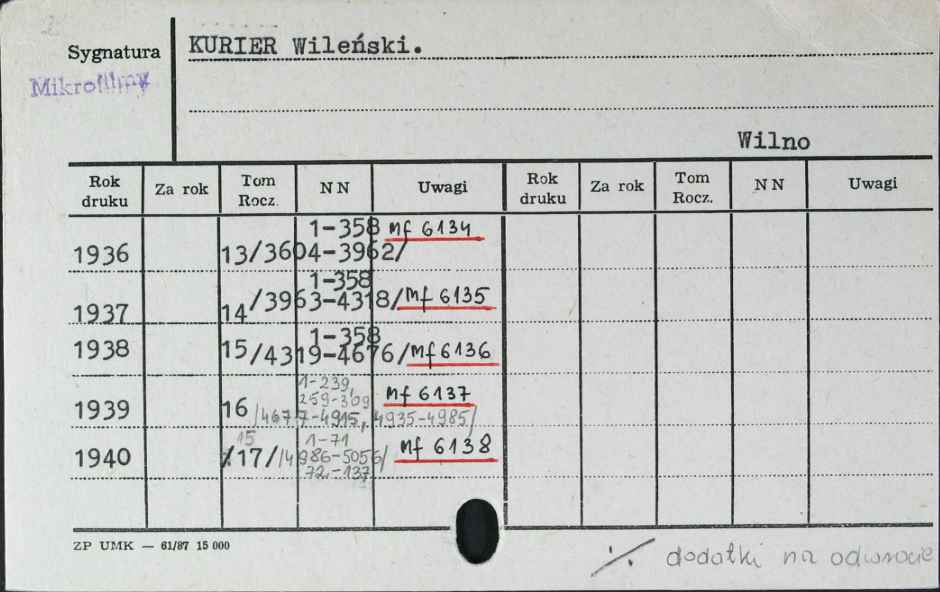 Sygnatura
KURIER Wileński.
Mikrofilmy
Wilno
Rok druku Za rok Tom Rocz. N N Uwagi Rok druku Za rok Tom Rocz. N N Uwagi
1-358 Mf 6134
1936 13/3604-3962/
1-358
1937 14/3963-4318/ Mf 6135
1-358
1938 15/4319-4676/ Mf 6136
1-239,
259-309 Mf 6137
1939 16 /4677-4915, 4935-4985/
15 1-71
1940 /17/ /4986-5056/ Mf 6138
72-137
ZP UMK — 61/87 15 000
./. dodatki na odwrocie